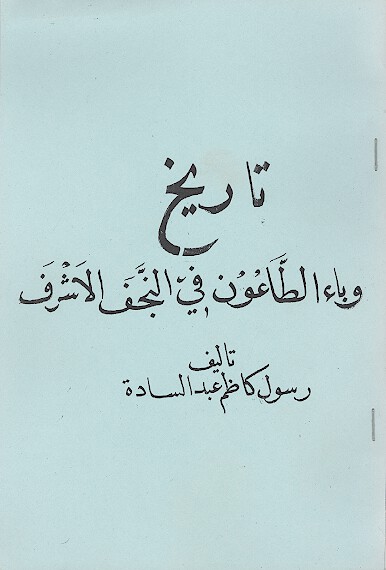 تاريخ
وباء الطَّاعُون في النَّجَف الاَشْرَفَ
تاليف
رسول كاظم عبد السادة